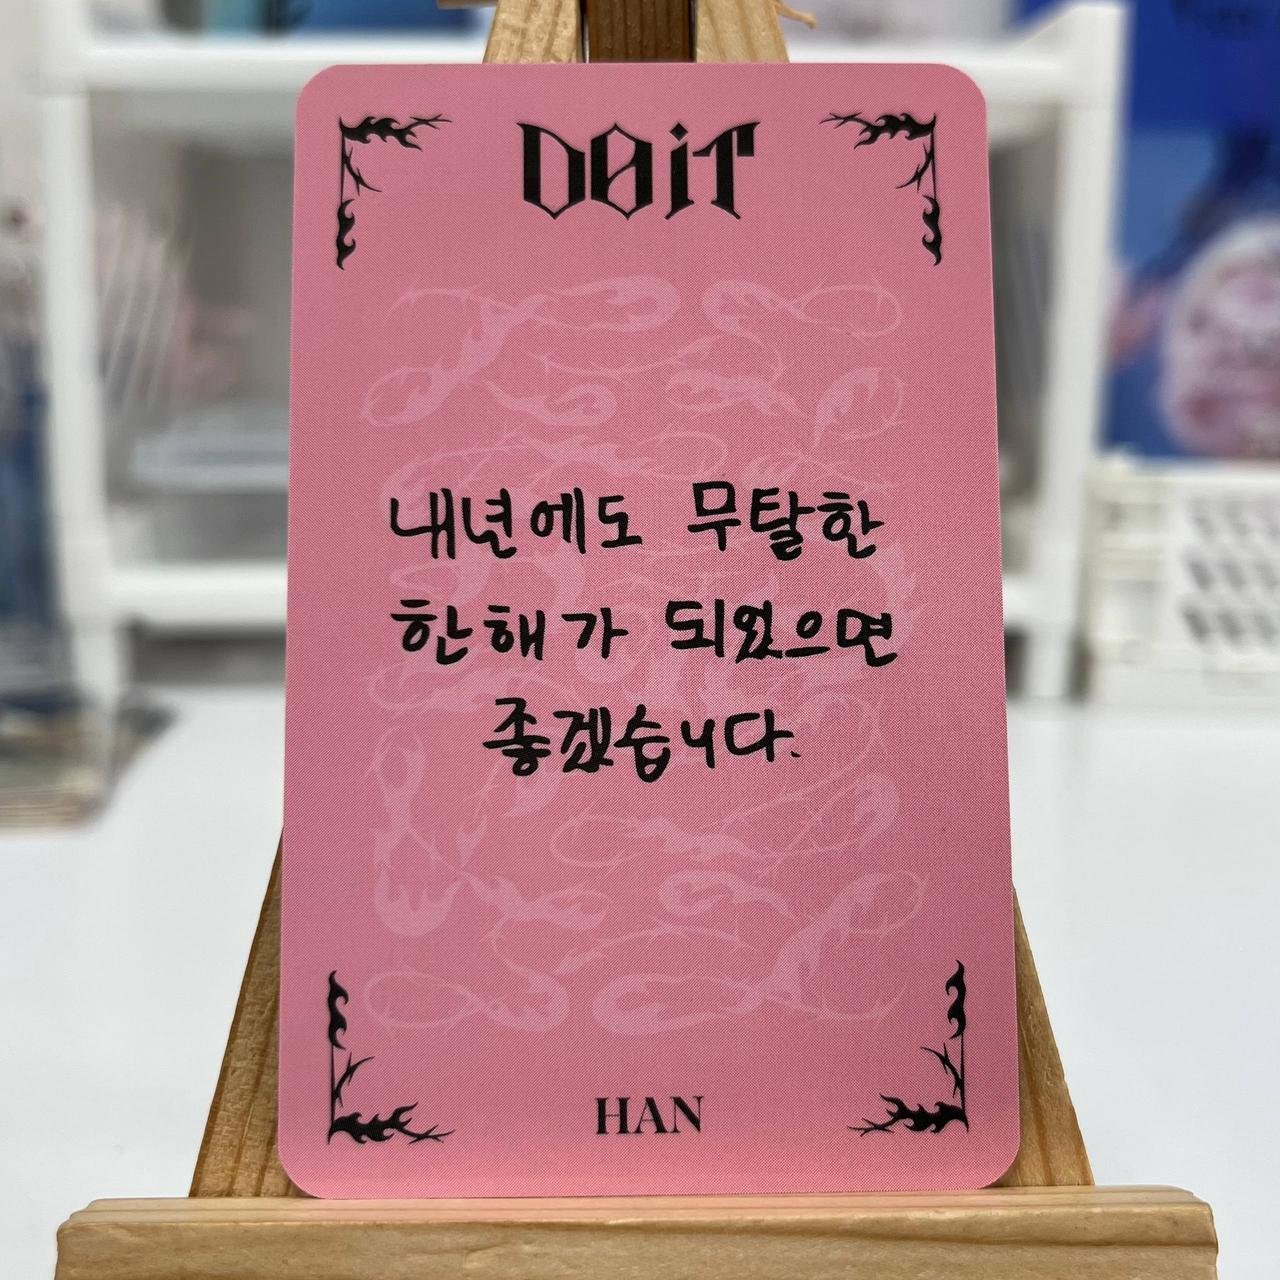 DOiT
내년에도 무탈한
한해가 되었으면
좋겠습니다.
HAN